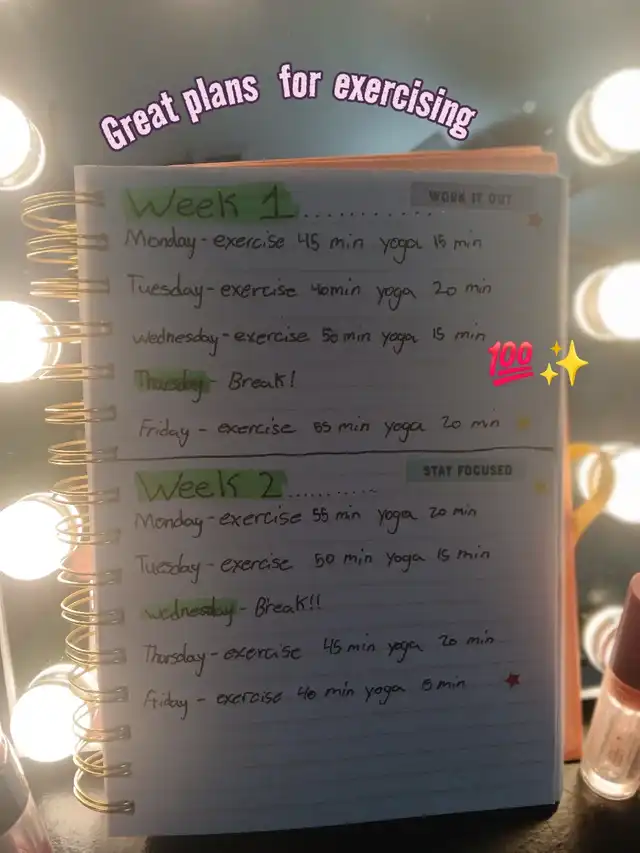 Great plans for exercising
Week 1............
WORK IT OUT
Monday - exercise 45 min yoga 15 min
Tuesday - exercise 40min yoga 20 min
wednesday - exercise 50 min yoga 15 min
💯✨
Thursday - Break!
Friday - exercise 55 min yoga 20 min
STAY FOCUSED
Week 2..........
Monday - exercise 55 min yoga 20 min
Tuesday - exercise 50 min yoga 15 min
wednesday - Break!!
Thursday - exercise 45 min yoga 20 min
Friday - exercise 40 min yoga min